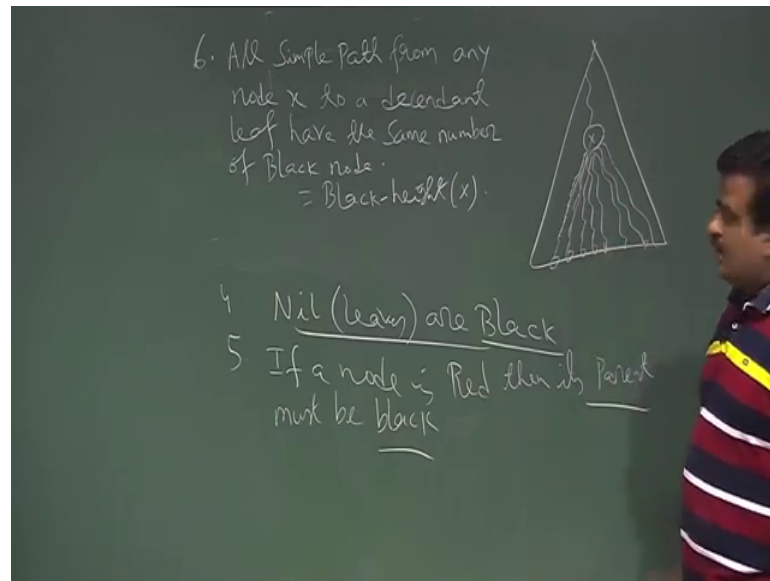 6. All Simple Path from any
node x to a decendant
leaf have the Same number
of Black node.
= Black-height(x).
x
4 Nil (leaves) are Black
5. If a node is Red then its Parent
must be black